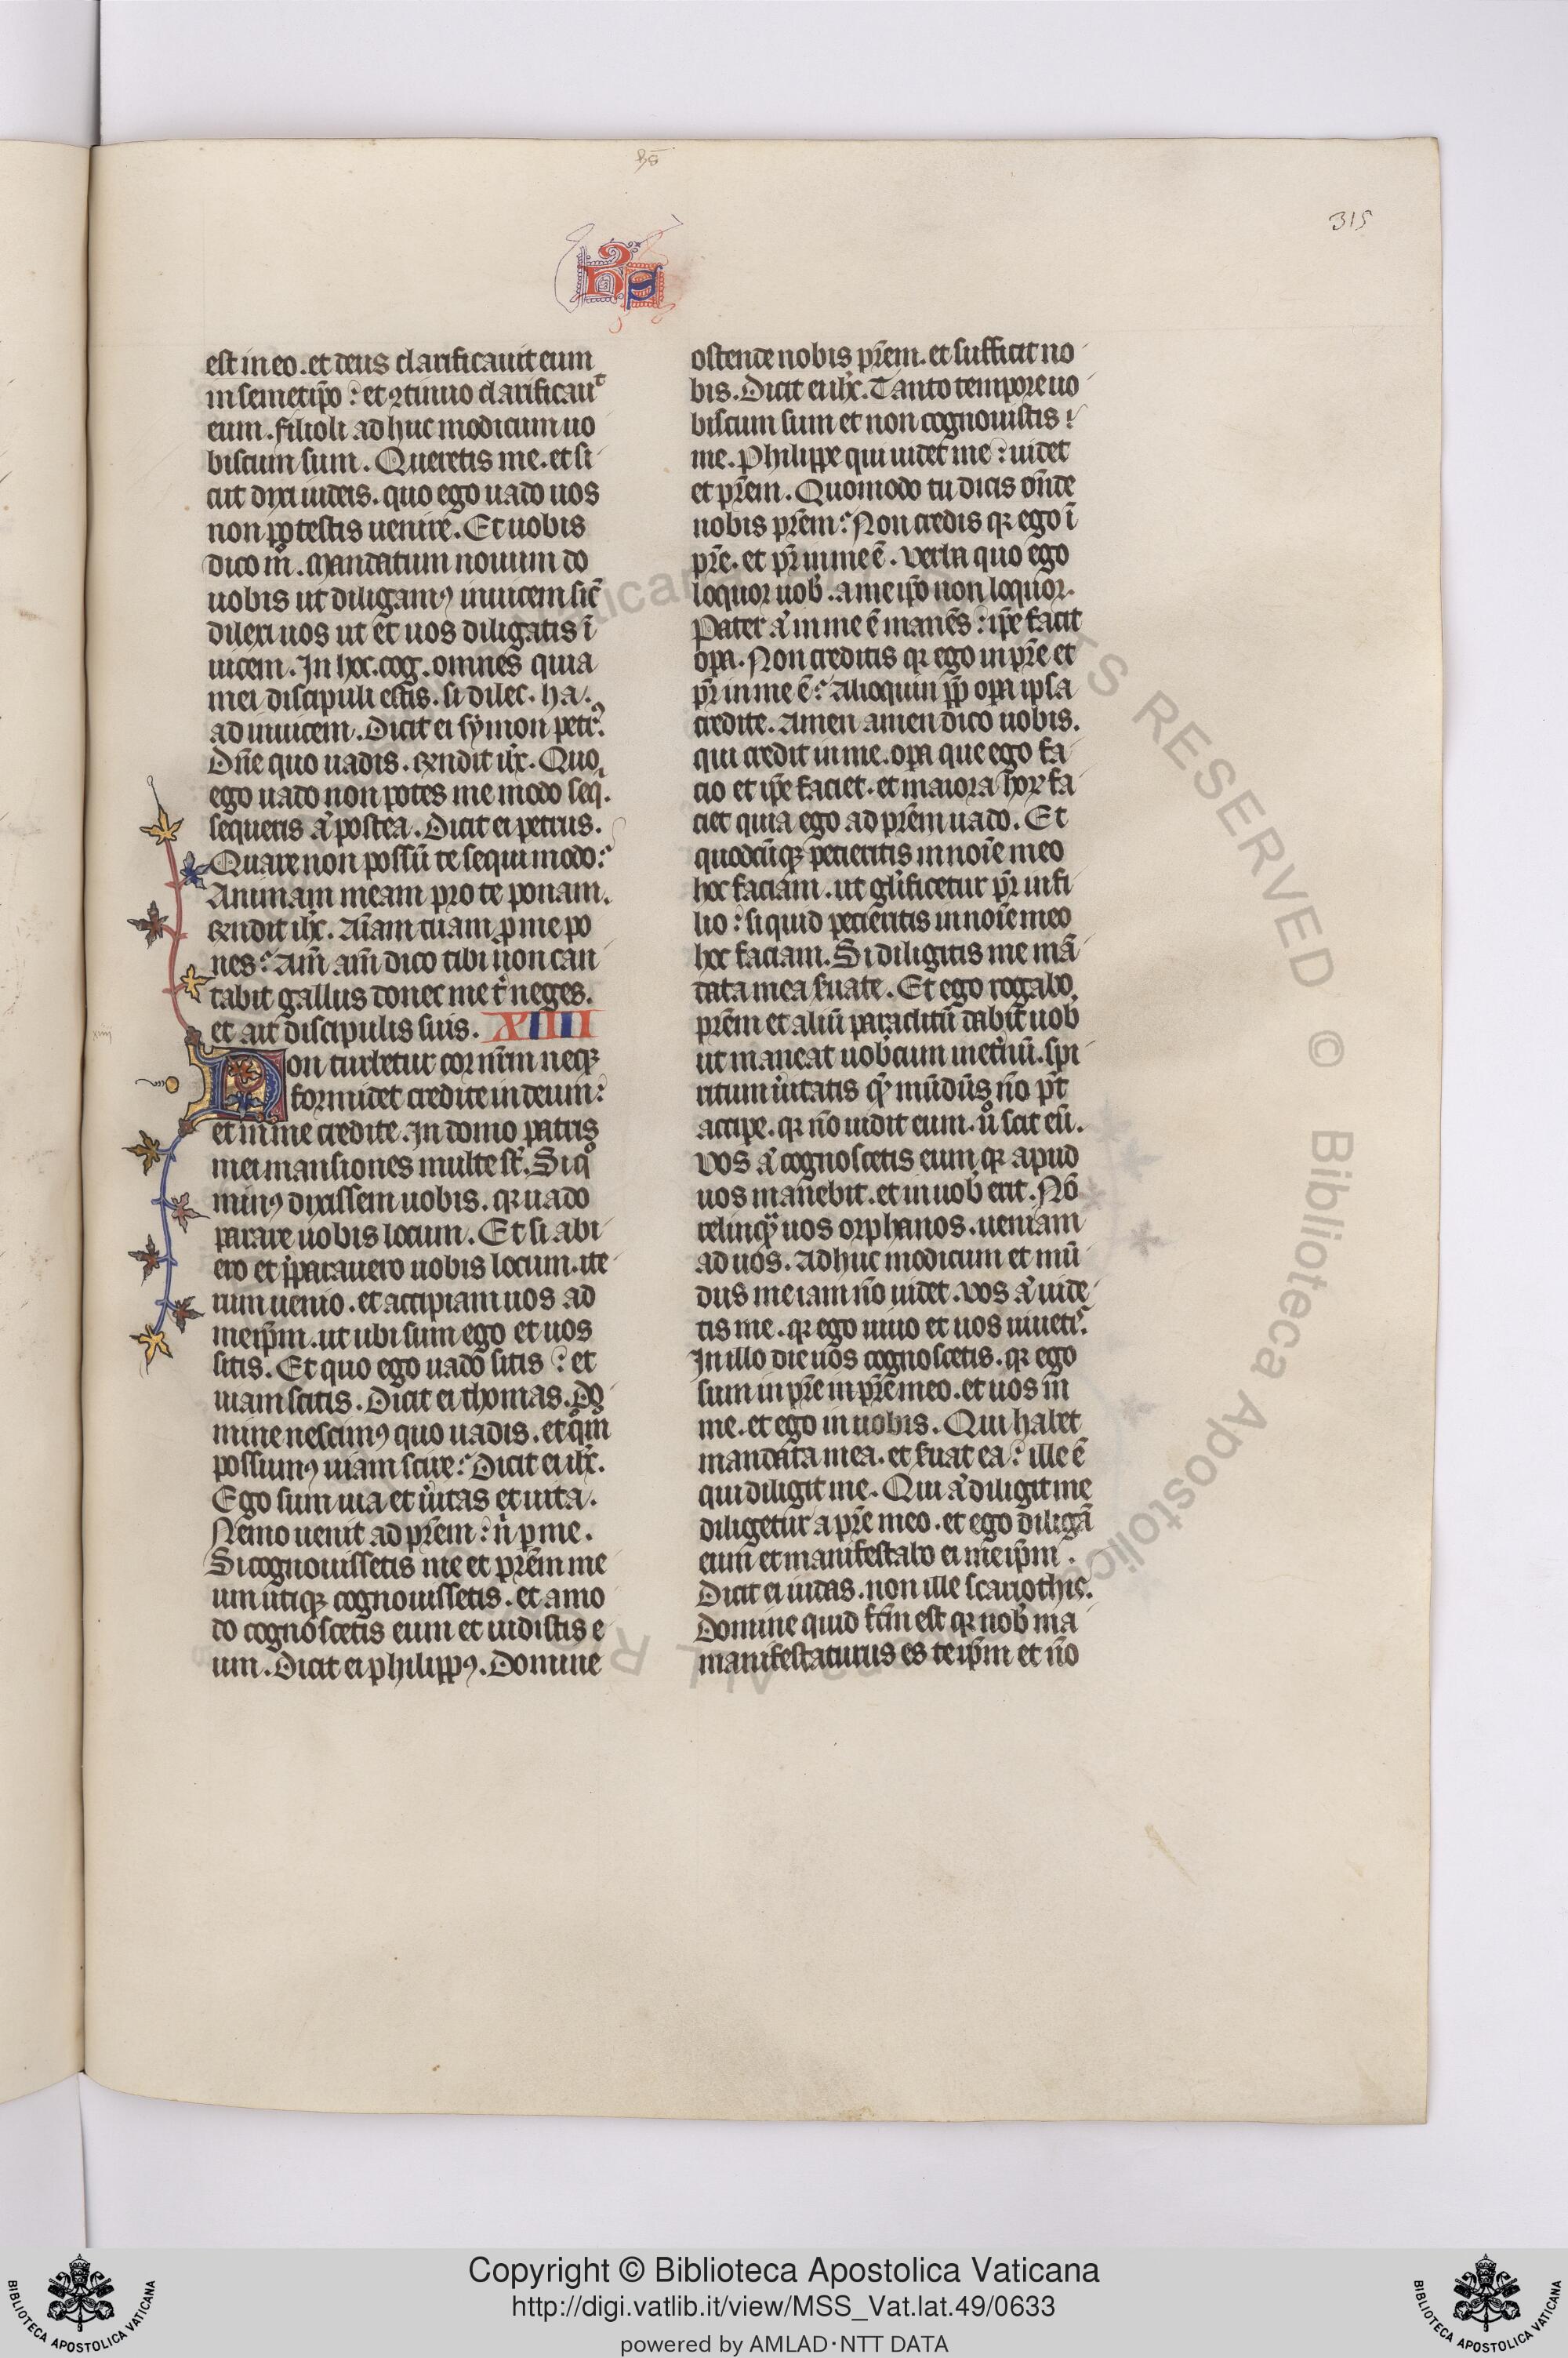 hs̄
315
HS
est in eo. et deus clarificauit eum
in semetip̄o: et ꝯtinuo clarificauᵗ
eum. filioli ad huc modicum uo
biscum sum. Queretis me. et si
cut dixi iudeis. quo ego uado uos
non potestis uenire. Et uobis
dico m̊. Mandatum nouum do
uobis ut diligamꝰ inuicem sic̄
dilexi uos ut et uos diligatis ī
uicem. In hoc. cog. omnes quia
mei discipuli estis. si dilec. ha.
ad inuicem. Dicit ei symon petrꝰ.
Dn̄e quo uadis. Rn̄dit ih̄c. Quo
ego uado non potes me modo seqi.
sequeris aͭ postea. Dicit ei petrus.
Quare non possū te sequi modo?
Animam meam pro te ponam.
Rn̄dit ih̄c. Aīam tuam ꝓ me po
nes? Am̄ am̄ dico tibi non can
tabit gallus donec me t͛ neges.
et ait discipulis suis. XIIII
Non turbetur cor nr̄m neqꝫ
formidet credite in deum:
et in me credite. In domo patris
mei mansiones multe st̄. Si qͦ
minꝰ dixissem uobis. qꝛ uado
parare uobis locum. Et si abi
ero et p̄parauero uobis locum. ite
rum uenio. et accipiam uos ad
meip̄m. ut ubi sum ego et uos
sitis. Et quo ego uado sitis: et
uiam scitis. Dicit ei thomas. Do
mine nescimꝰ quo uadis. et qͦm̄
possumꝰ uiam scire? Dicit ei ih̄c.
Ego sum uia et ũitas et uita.
Nemo uenit ad pr̄em: ñ ꝑ me.
Si cognouissetis me et pr̄em me
um utiqꝫ cognouissetis. et amo
do cognoscetis eum et uidistis e
um. Dicit ei philippꝰ. Domine
ostende nobis pr̄em. et sufficit no
bis. Dicit ei ih̄c. Tanto tempore uo
biscum sum et non cognouistis
me. Philippe qui uidet me: uidet
et pr̄em. Quomodo tu dicis on̄de
nobis pr̄em? Non credis qꝛ ego ī
pr̄e. et pr̄ in me ē. Verba quo ego
loquor uob̾. a meip̄o non loquor.
Pater aͭ in me ē manēs: ip̄e facit
opa. Non creditis qꝛ ego in pr̄e et
pr̄ in me ē? Alioquin ꝓp̄ opa ipsa
credite. Amen amen dico uobis.
qui credit in me. opa que ego fa
cio et ip̄e faciet. et maiora hoꝝ fa
ciet quia ego ad pr̄em uado. Et
quodcūqꝫ petieritis in noīe meo
hoc faciam. ut gl̄ificetur pr̄ in fi
lio: si quid petieritis in noīe meo
hoc faciam. Si diligitis me mā
data mea ẜuate. Et ego rogabo
pr̄em et aliū paraclitū dabit uob̾
ut maneat uob̾cum inet͛nū. spi
ritum ũitatis qͥ mūdus nō pt̄
accipe. qꝛ nō uidit eum. ů scit eū.
Vos aͭ cognoscetis eum qꝛ apud
uos manebit. et in uob̾ erit. Nō
relinqͣ uos orphanos. ueniam
ad uos. Adhuc modicum et mū
dus me iam nō uidet. Vos aͭ uide
tis me. qꝛ ego uiuo et uos uiuetꝭ.
In illo die uos cognoscetis. qꝛ ego
sum in pr̄e in pr̄e meo. et uos in
me. et ego in uobis. Qui habet
mandata mea. et ẜuat ea: ille ē
qui diligit me. Qui aͭ diligit me
diligetur a pr̄e meo. et ego diligā
eum et manifestabo ei meip̄m.
Dicit ei iudas. non ille scariothis.
Domine quid fc̄m est qꝛ nob̾ ma
manifestaturus es teip̄m et nō
Copyright © Biblioteca Apostolica Vaticana
http://digi.vatlib.it/view/MSS_Vat.lat.49/0633
powered by AMLAD·NTT DATA
BIBLIOTECA APOSTOLICA VATICANA
BIBLIOTECA APOSTOLICA VATICANA